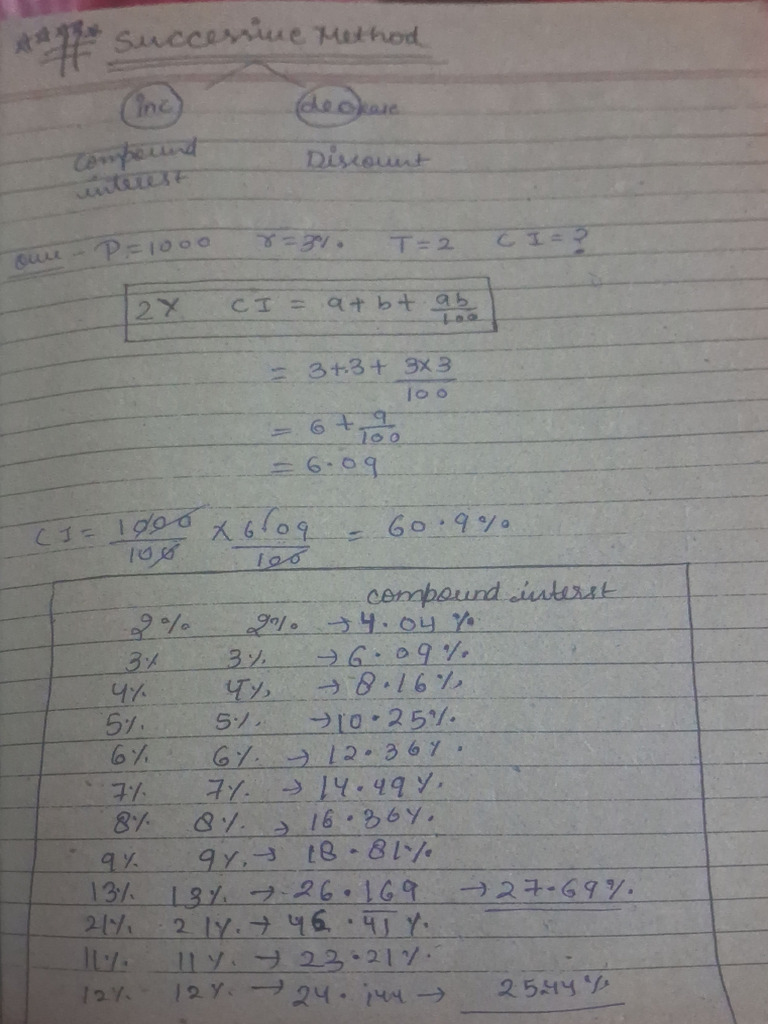 **** # Successive Method
inc decrease
compound interest Discount
Que - P=1000 r=3% T=2 CI=?
2Y CI = a+b+ ab/100
= 3+3+ 3×3/100
= 6+ 9/100
= 6.09
CI = 1000/100 × 6.09/100 = 60.9%
compound interst
2% 2% → 4.04%
3% 3% → 6.09%
4% 4% → 8.16%
5% 5% → 10.25%
6% 6% → 12.36%
7% 7% → 14.49%
8% 8% → 16.36%
9% 9% → 18.81%
13% 13% → 26.169 → 27.69%
21% 21% → 46.41%
11% 11% → 23.21%
12% 12% → 24.144 → 25.44%